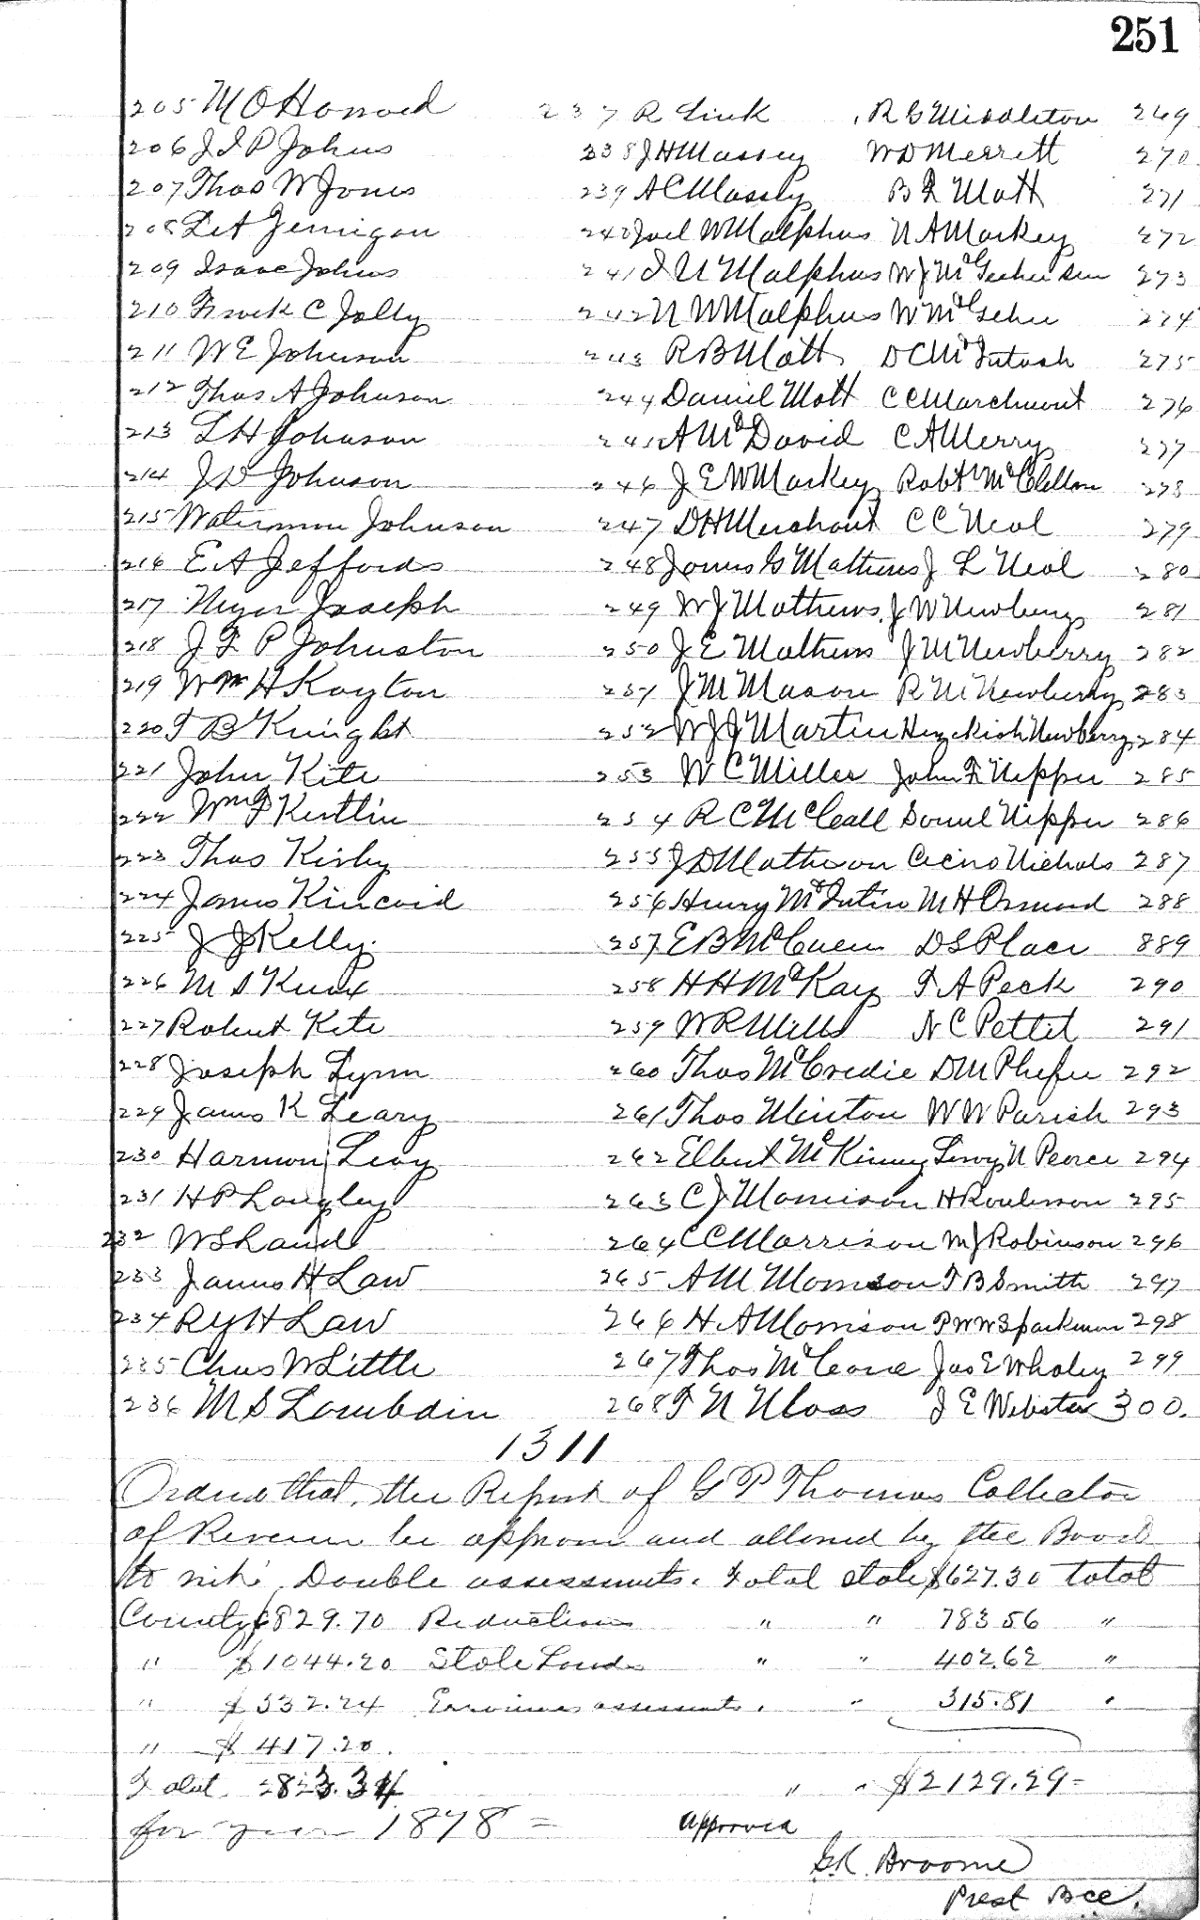 251
205 M O Howard 237 R Link R G Middleton 269
206 J I P Johns 238 J H Massey W D Merrett 270
207 Thos W Jones 239 A C Massey B R Mott 271
208 L A Jernigan 240 Joel W Malphus N A Markey 272
209 Isaac Johns 241 J N Malphus W J McGeehee Sen 273
210 Frank C Jolly 242 N W Malphus W McGehee 274
211 W E Johnson 243 R B Mott D C McIntosh 275
212 Thos A Johnson 244 Daniel Mott C C Marchmont 276
213 L H Johnson 245 A McDavid C A Merry 277
214 J D Johnson 246 J E W Markey Robt McClellan 278
215 Waterman Johnson 247 D H Merchant C C Neal 279
216 E A Jeffords 248 James G Mathews J L Neal 280
217 Joseph 249 W J Mathews J W Newberry 281
218 J F P Johnston 250 J E Mathews J M Newberry 282
219 Wm H Kayton 251 J M Mason R M Newberry 283
220 T B Knight 252 W J J Martin Hezekiah Newberry 284
221 John Kite 253 W C Miller John F Nipper 285
222 Wm F Kertlin 254 R C McCall Samel Nipper 286
223 Thos Kirby 255 J D Matheson Cicero Nichols 287
224 James Kincaid 256 Henry McIntire M H Ormond 288
225 J J Kelly 257 E B McCuen D S Place 889
226 M S Knox 258 H H McKay F A Peck 290
227 Robert Kite 259 W R Mills N C Pettit 291
228 Joseph Lynn 260 Thos McCredie D M Phifer 292
229 James K Leary 261 Thos Minton W W Parish 293
230 Harmon Levy 262 Elbert McKinney Leroy N Pearce 294
231 H P Langley 263 C J Morrison H Roulerson 295
232 W S Land 264 C C Morrison M J Robinson 296
233 James H Law 265 A M Morrison T B Smith 297
234 R Y H Law 266 H A Morrison P W W Sparkman 298
235 Chas W Little 267 Thos McCone Jas E Whaley 299
236 M S Lambdin 268 F N Moss J E Webster 300.
1311
Ordered that the Report of G P Thomas Collector
of Revenue be approve and allowed by the Board
to wit: Double assessments. Total state $627.30 total
County $829.70 Reductions " " 783.56 "
" $1044.20 State Lands " " 402.62 "
" $532.24 Erroneous assessments. " 315.81 "
" $417.20.
Total 2823.34 " " $2129.29=
for year 1878=
Approved
G.K. Broome
Prest Bcc.